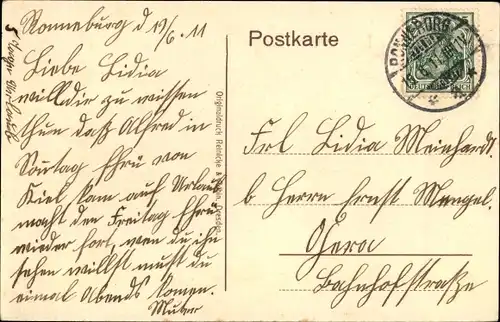 Ronneburg d 19/6. 11
Liebe Lidia
will dir zu wissen
thun daß Alfred in
Sontag Früh von
Kiel kam auf Urlaub
macht den Freitag Früh
wieder fort, wen du ihn
sehen willst must du
einmal Abends komen.
Mutter
Postkarte
Originaldruck Reinicke & Dresden.
RONNEBURG
DEUTSCHES REICH
Frl Lidia Meinhardt.
b. Herrn Ernst Mengel.
Gera
Bahnhofstraße